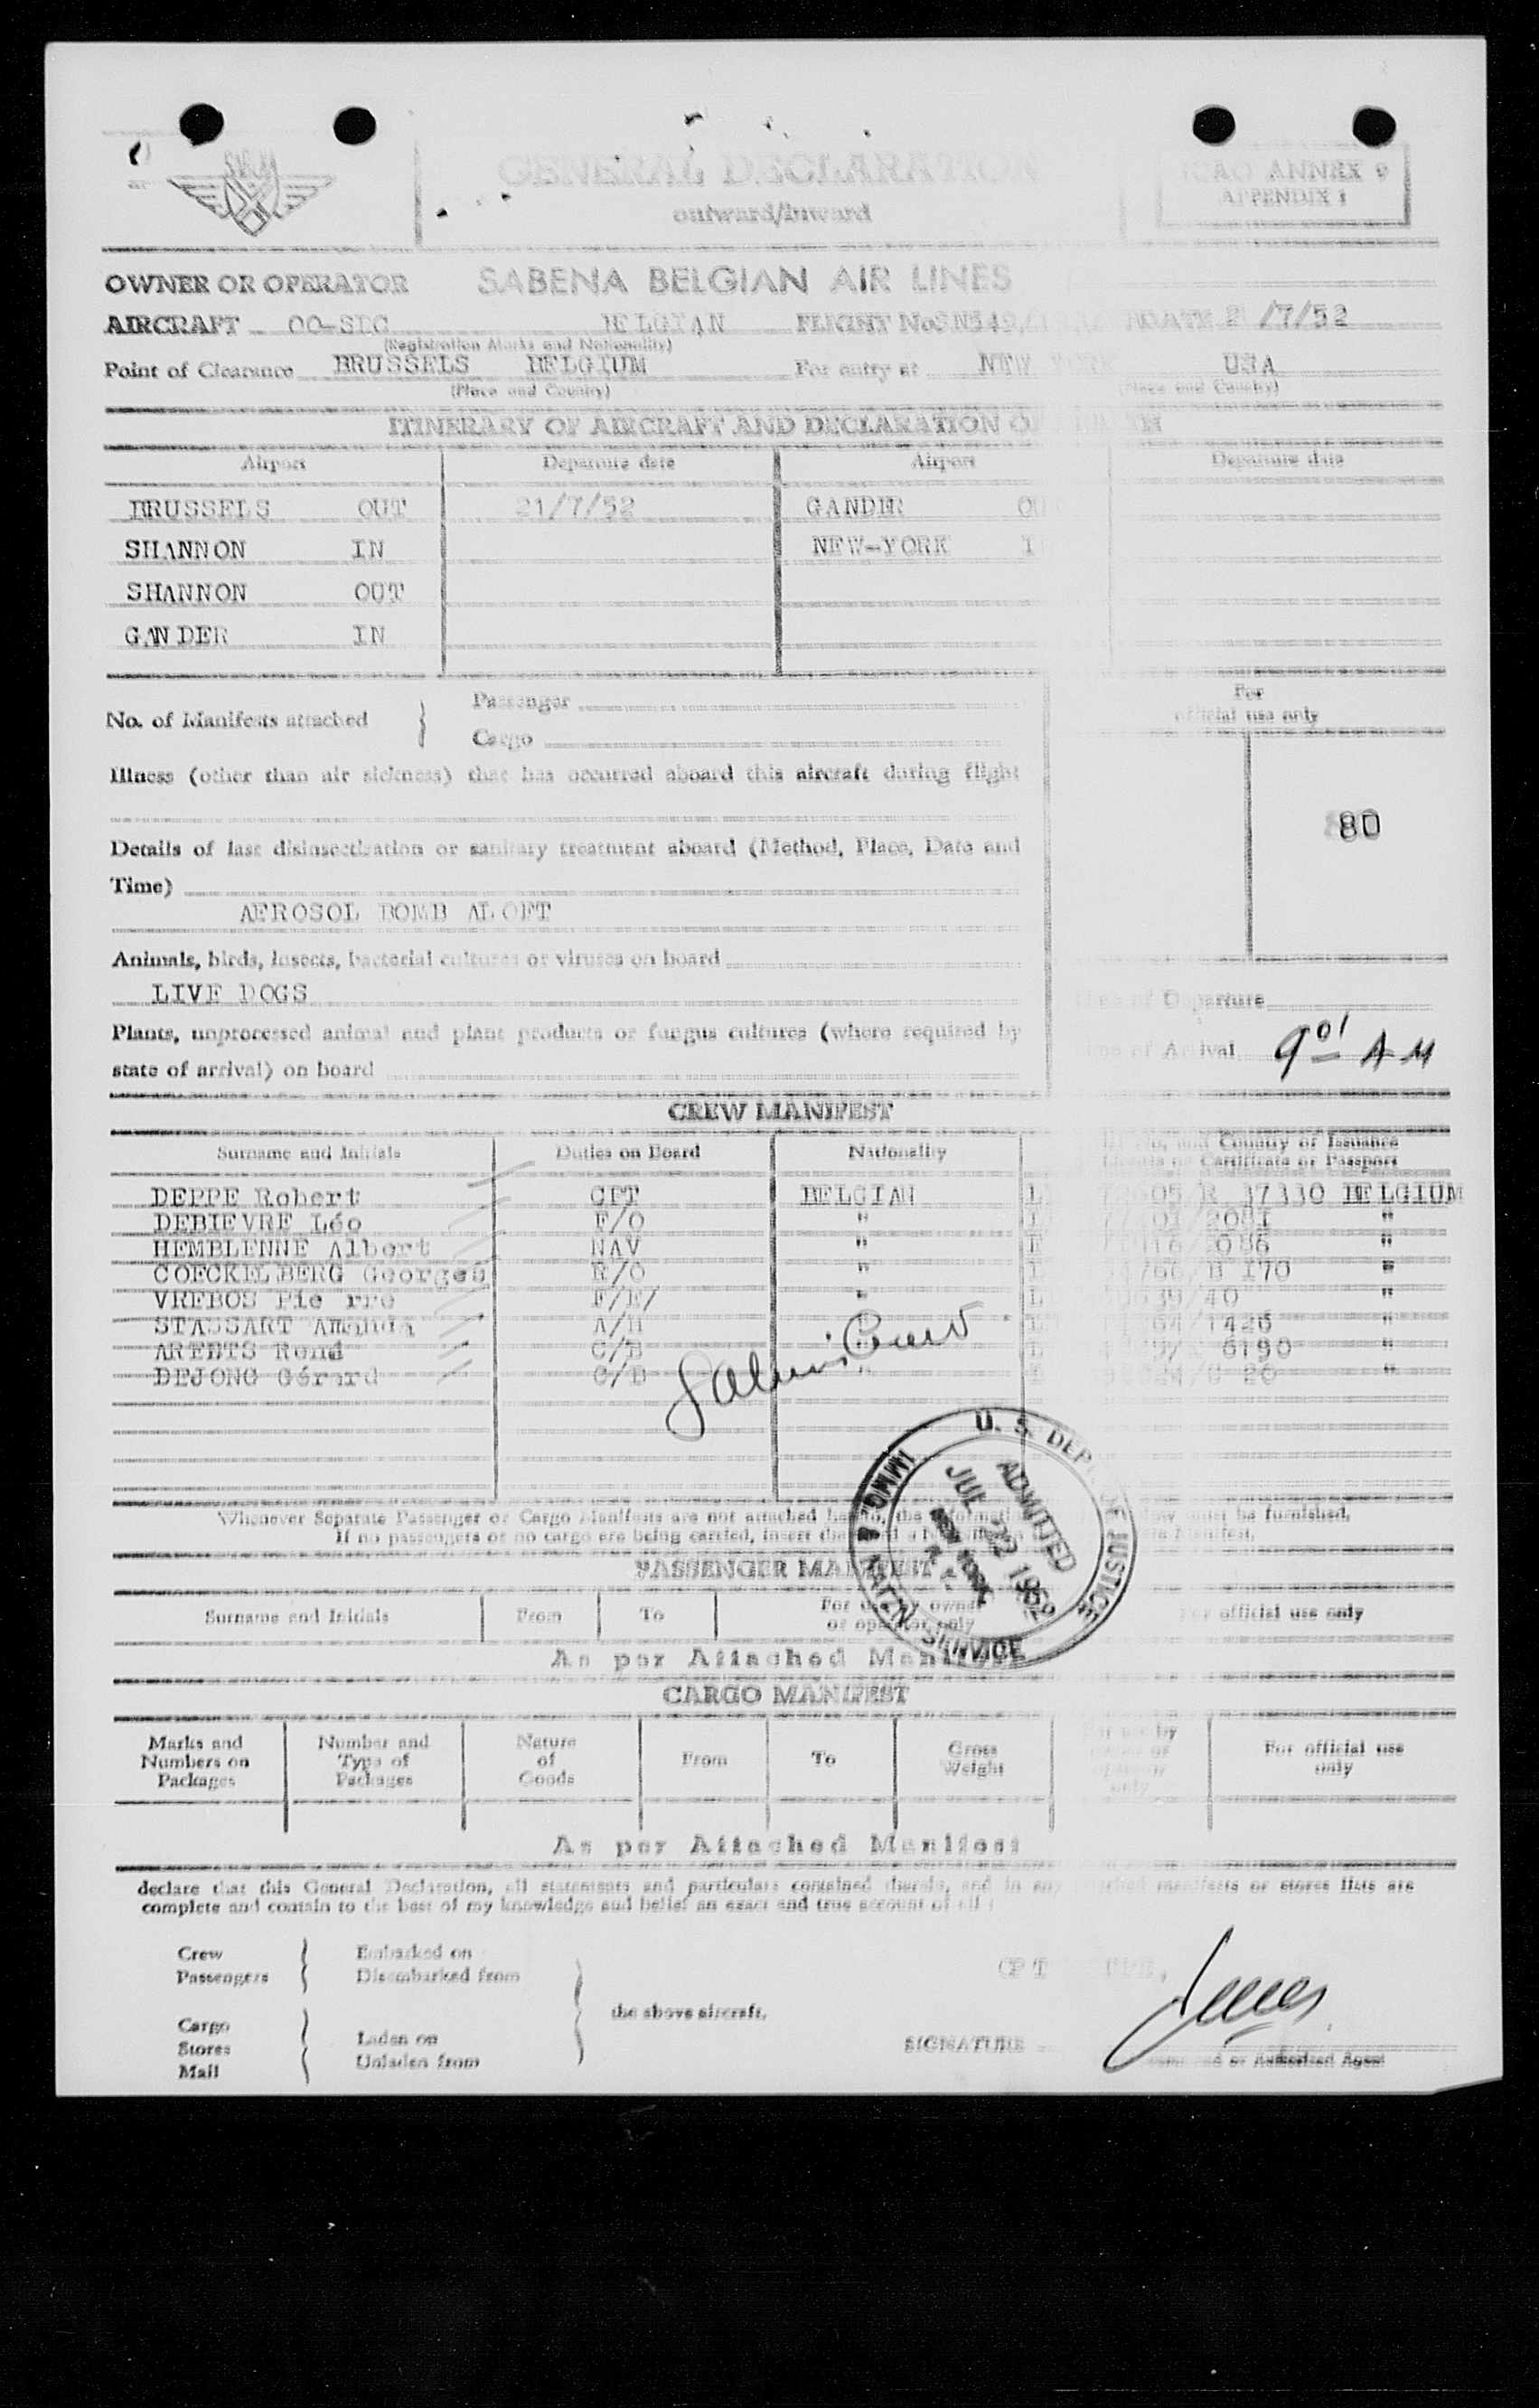 SABENA
GENERAL DECLARATION
outward/inward
ICAO ANNEX 9
APPENDIX 1
OWNER OR OPERATOR SABENA BELGIAN AIR LINES
AIRCRAFT BELGIAN FLIGHT No. DATE /7/52
(Registration Marks and Nationality)
Point of Clearance BRUSSELS BELGIUM For entry at NEW YORK USA
(Place and Country) (Place and Country)
ITINERARY OF AIRCRAFT AND DECLARATION OF HEALTH
Airport Departure date Airport Departure date
BRUSSELS OUT 21/7/52 GANDER OU
SHANNON IN NEW-YORK I
SHANNON OUT
GANDER IN
No. of Manifests attached } Passenger
Cargo
For
official use only
Illness (other than air sickness) that has occurred aboard this aircraft during flight
80
Details of last disinsectization or sanitary treatment aboard (Method, Place, Date and
Time)
AEROSOL BOMB ALOFT
Animals, birds, insects, bacterial cultures or viruses on board
LIVE DOGS
Time of Departure
Plants, unprocessed animal and plant products or fungus cultures (where required by
state of arrival) on board
Time of Arrival 9 01 AM
CREW MANIFEST
Surname and Initials Duties on Board Nationality No. and Country of Issuance
Licence or Certificate or Passport
DEPPE Robert CPT BELGIAN L 37330 BELGIUM
DEBIEVRE Léo F/O " "
HEMBLENNE Albert NAV " "
COECKELBERG Georges R/O " 170 "
VREBOS Pierre F/E/ " /40 "
STASSART Amanda A/H /1426 "
ARTETS René C/B 6190 "
DEJONG Gérard C/B " 20 "
Crew
U. S. DEPT. OF JUSTICE
ADMITTED
JUL 22 1952
NEW YORK
N. Y.
IMMIG. & NATZN. SERVICE
Whenever Separate Passenger or Cargo Manifests are not attached hereto, the below must be furnished.
If no passengers or no cargo are being carried, insert the Manifest.
PASSENGER MANIFEST
Surname and Initials From To For use by owner
or operator only For official use only
As per Attached Manifest
CARGO MANIFEST
Marks and
Numbers on
Packages
Number and
Type of
Packages
Nature
of
Goods
From
To
Gross
Weight
For use by
owner or
operator
only
For official use
only
As per Attached Manifest
declare that this General Declaration, all statements and particulars contained therein, and in any attached manifests or stores lists are
complete and contain to the best of my knowledge and belief an exact and true account of all
Crew
Passengers } Embarked on
Disembarked from
the above aircraft.
Cargo
Stores
Mail } Laden on
Unladen from
CPT
SIGNATURE
or Authorized Agent